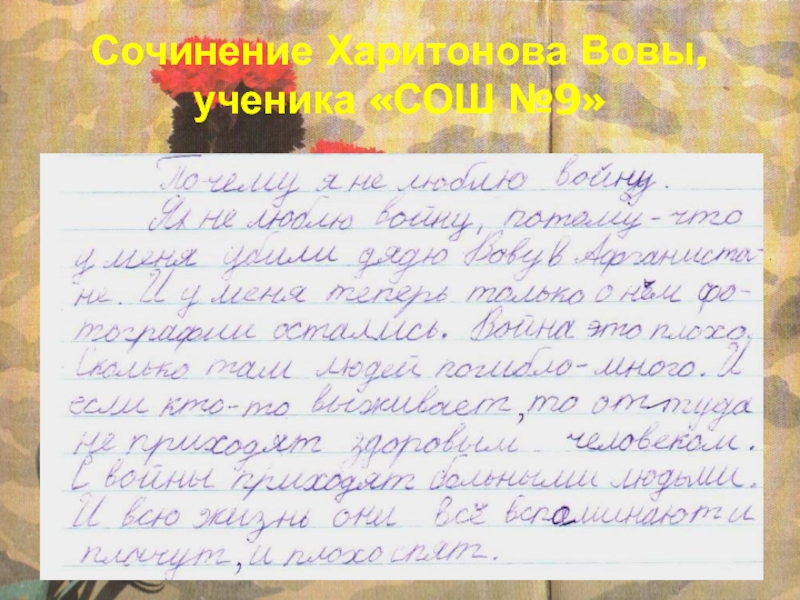 Сочинение Харитонова Вовы,
ученика «СОШ №9»
Почему я не люблю войну.
Я не люблю войну, потому-что
у меня убили дядю Вову в Афганиста-
не. И у меня теперь только о нём фо-
тографии остались. Война это плохо.
Сколько там людей погибло-много. И
если кто-то выживает, то от туда
не приходят здоровым человеком.
С войны приходят больными людьми.
И всю жизнь они всё вспоминают и
плачут, и плохо спят.